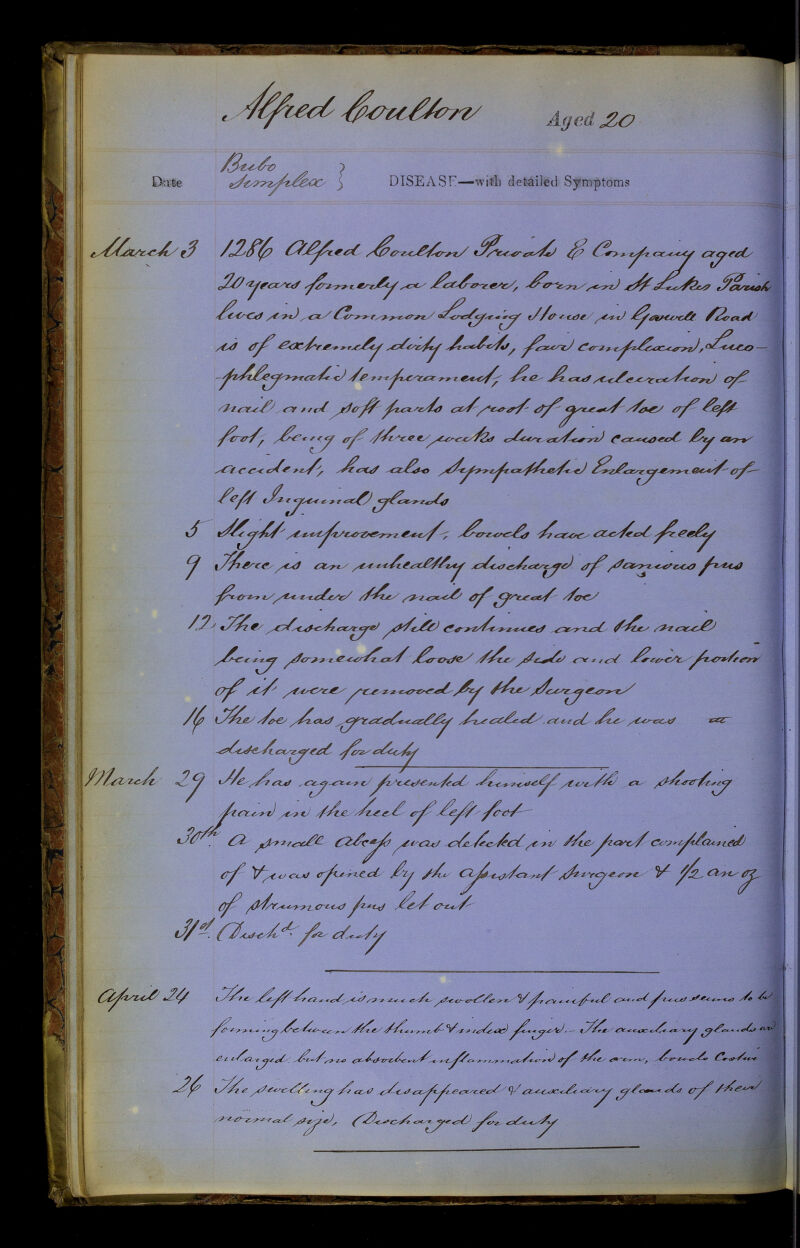 Alfred Coulton Aged 20
Bubo
Date Simplex } DISEASE—with detailed Symptoms
March 3 1286 Alfred Coulton Private E Company aged
20 years formerly a laborer, born in St Lukes Parish
lives in a Common Lodging House in Goswell Road
is of extremely dirty habits, fair complexion, Luco-
-phlegmatic temperament, he has ulceration of
nail and soft parts at root of great toe of left
foot, being of three weeks duration caused by an
accident, has also Sympathetic Enlargement of
left Inguinal glands
5 Slight improvement, bowels have acted freely
9 There is an unhealthy discharge of sanious pus
from under the nail of great toe
12 The discharge still continues and the nail
being somewhat loose the side and lower portion
of it were removed by the Surgeon
16 The toe has gradually healed and he was
discharged for duty
March 29 He has again presented himself with a shooting
pain in the heel of left foot
30th. A small abcess was detected in the part complained
of & was opened by the assistant Surgeon & 1/2 an oz
of strumous pus let out
31st. Dischd. for duty
April 24 The left hand is much swollen & painful and pus seems to be
forming between the thumb & index finger. - The auxiliary glands are
enlarged but no absorbent inflammation of the arm, bowels Costive
26 The swelling has disappeared & auxiliary glands of their
normal size, Discharged for duty